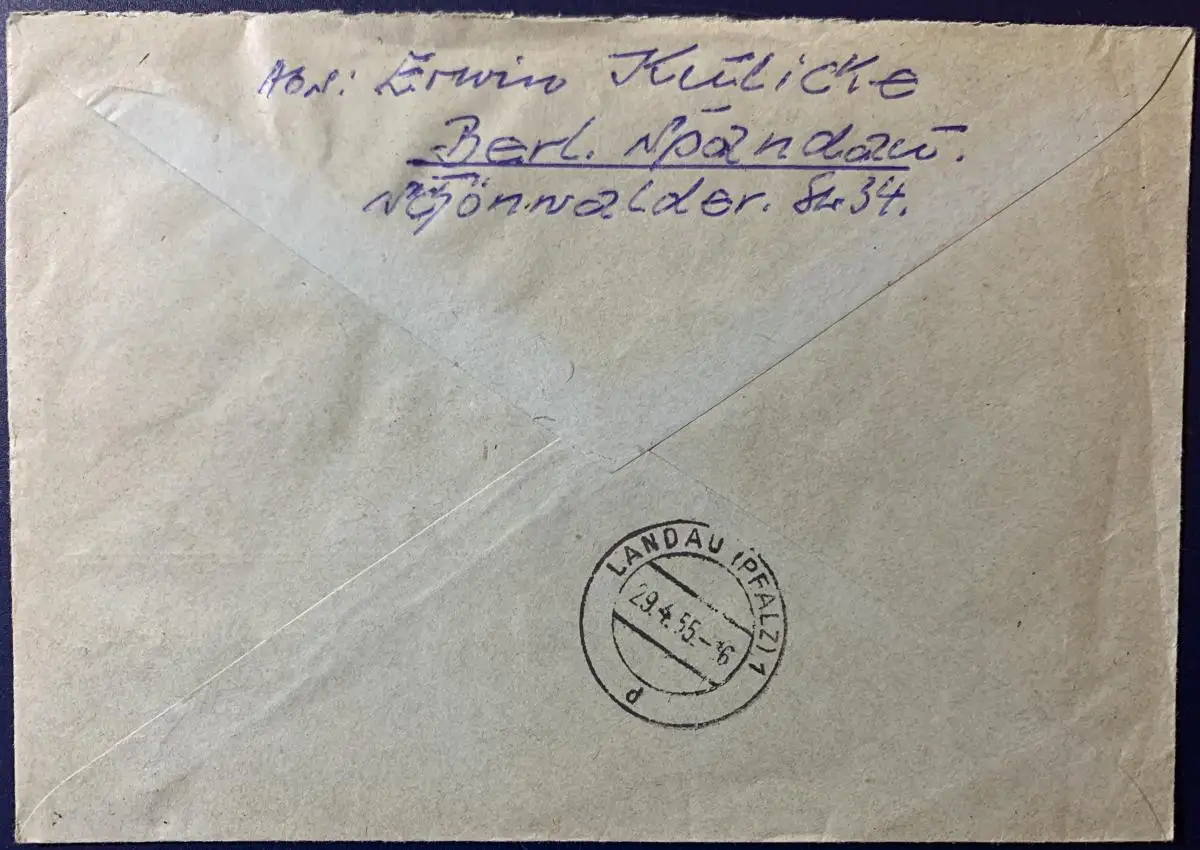 Abs: Erwin Kulicke
Berl. Spandau.
Schönwalder. Str 34.
LANDAU (PFALZ) 1
29.4.55.-16
p